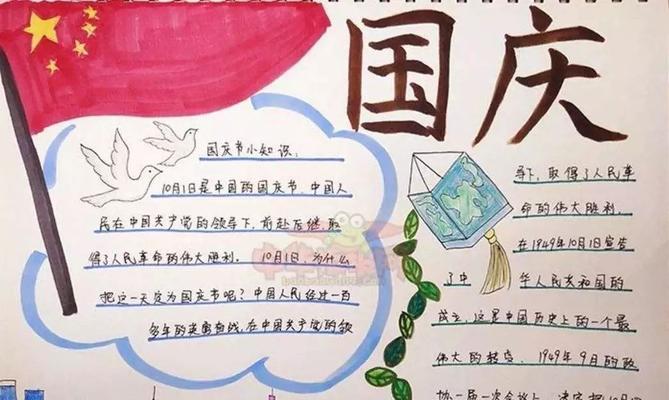 国庆
国庆节小知识：
10月1日是中国的国庆节，中国人
民在中国共产党的领导下，前赴后继，取
得了人民革命的伟大胜利。10月1日，为什么
把这一天定为国庆节呢？中国人民经过一百
多年的英勇奋战，在中国共产党的领
导下，取得了人民革
命的伟大胜利，
在1949年10月1日宣告
了中华人民共和国的
成立，这是中国历史上的一个最
伟大的转变。1949年9月的政
协一届一次会议上